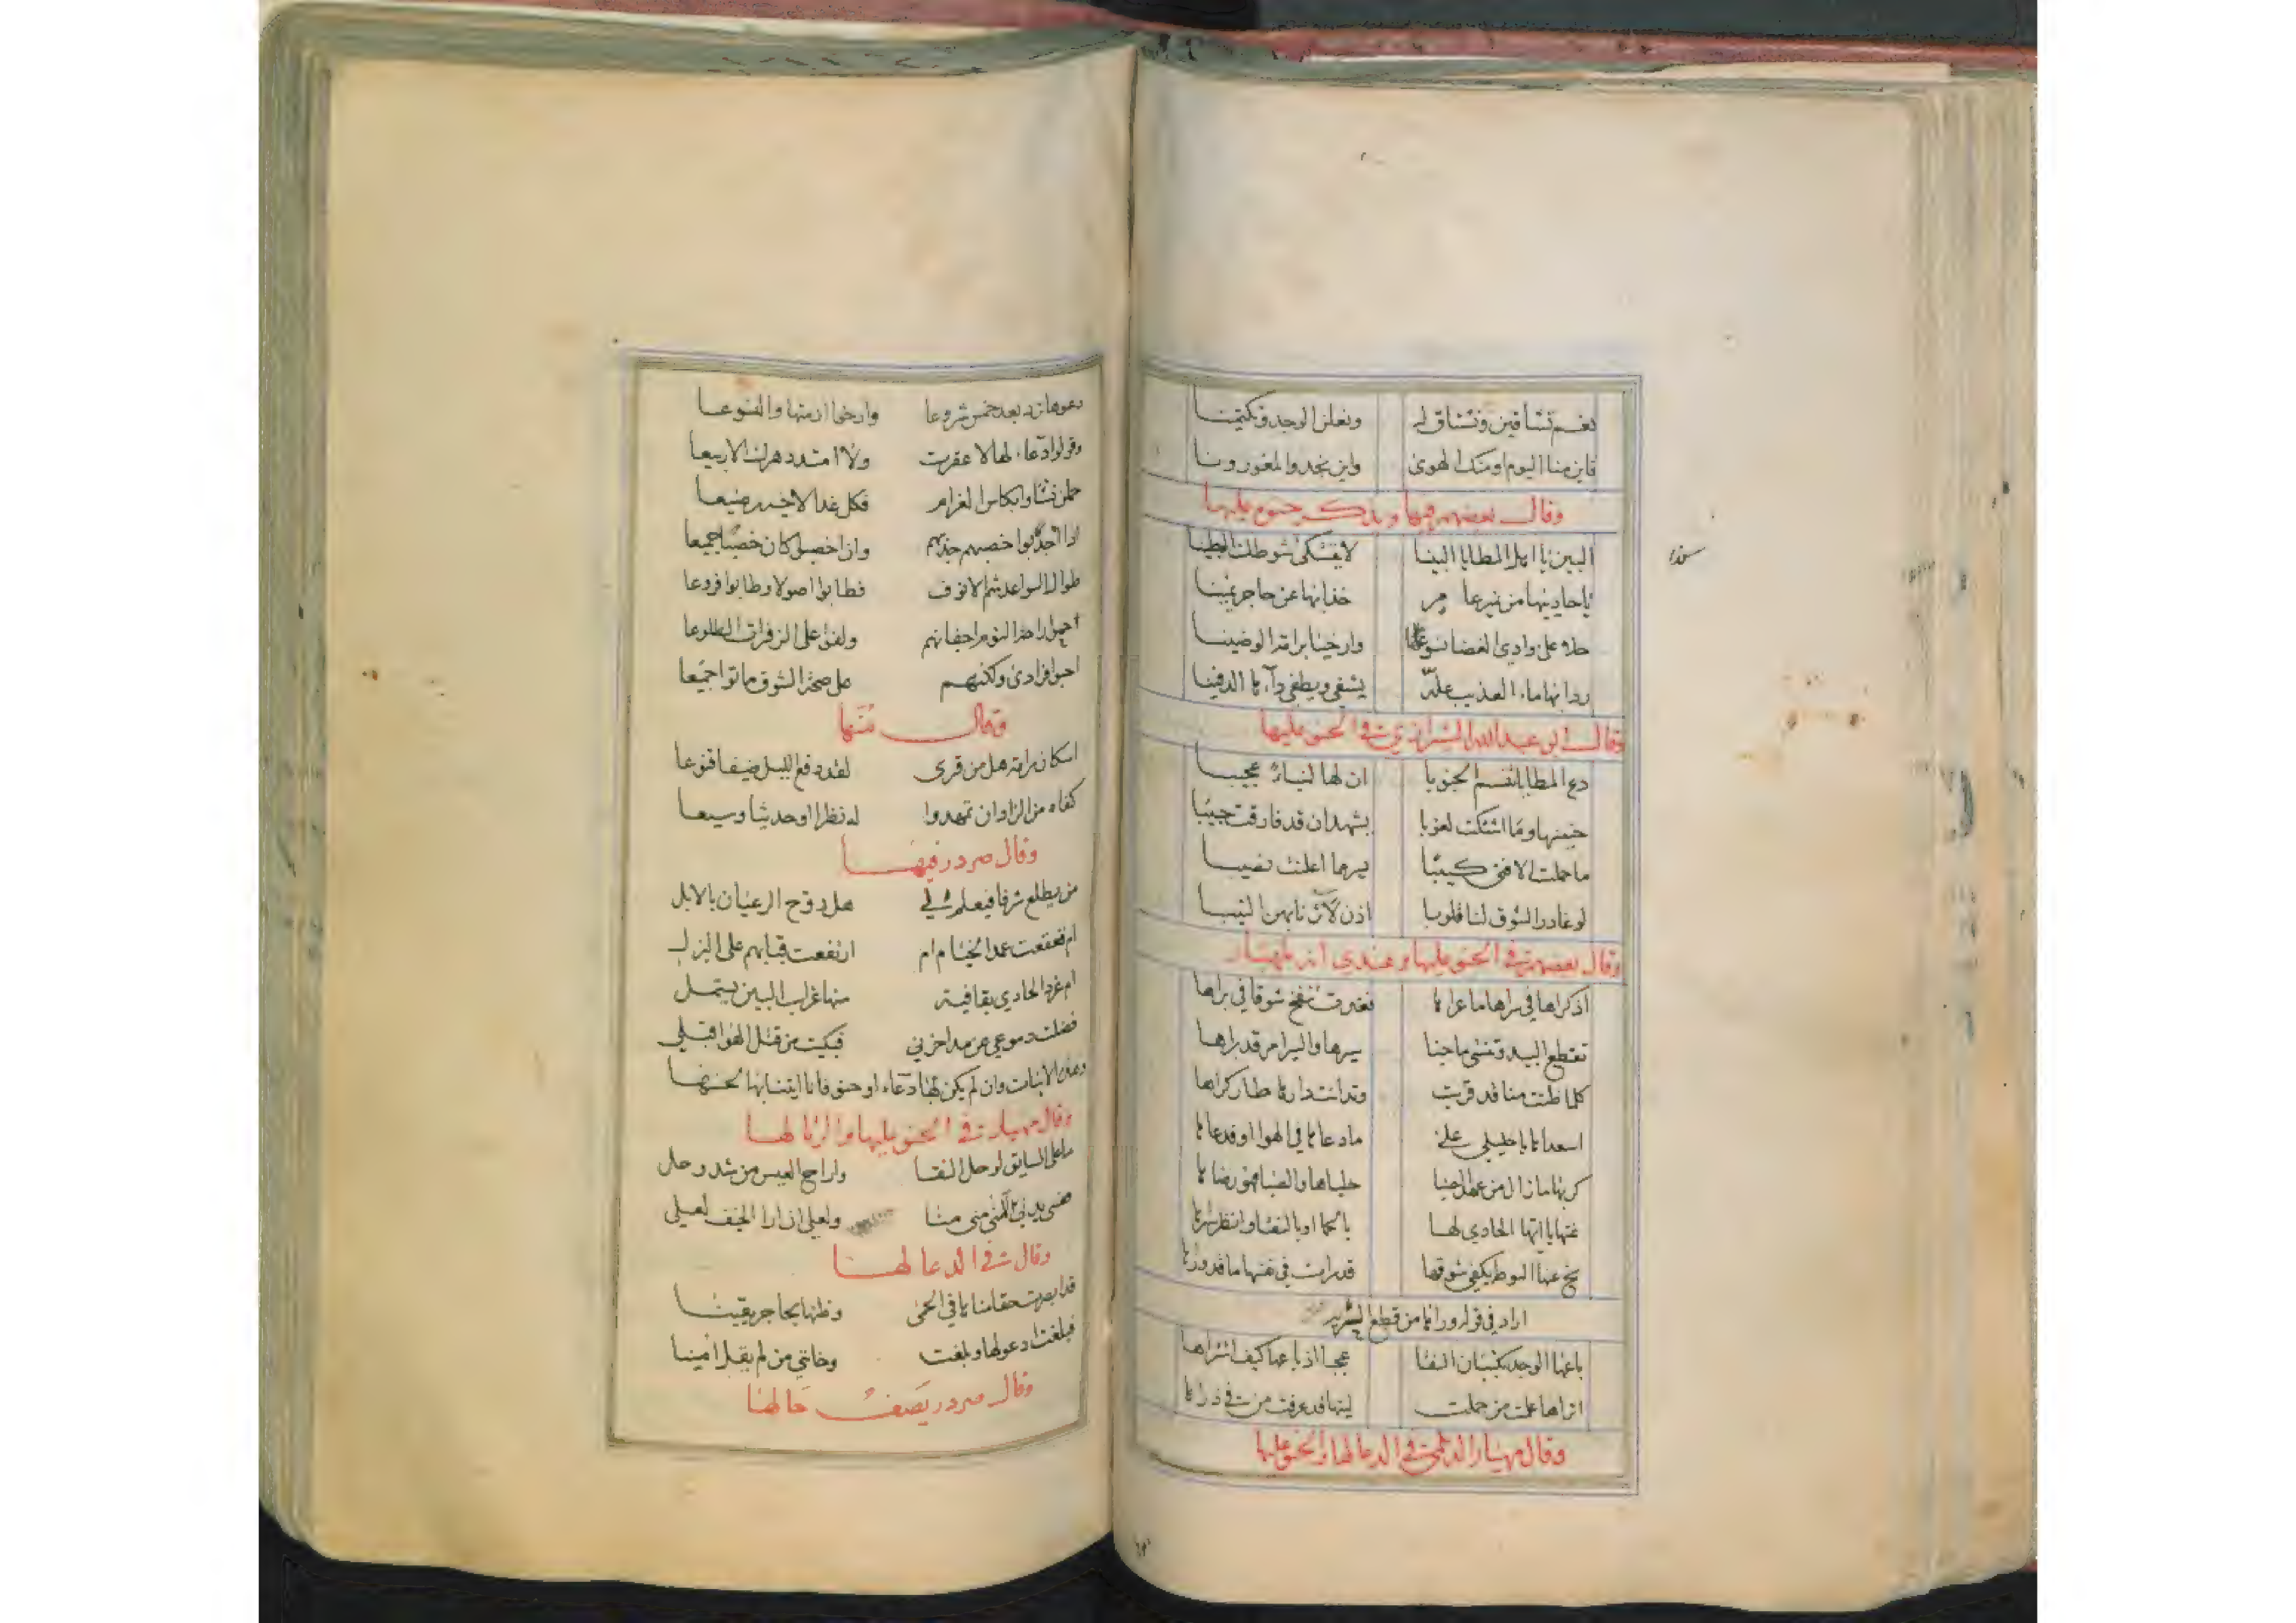 نعم تشاقين ونشتاق له ونعلن الوجد وتكتمينا
فاين منا اليوم او منك الهوى واين نجد والمغورونا
وقال بعضهم فيها ويذكر حنوه عليها
البين يا اهل المطايا البينا لا يشتكى شوطك البطينا
يا حادييها من نمير عامر خذا بها عن حاجر يمينا
حلا على وادي الغضا نسوعها وارخيا برامة الوضينا
ردا بها ماء العذيب علّه يشفي ويطفي داءنا الدفينا
وقال ابو عبد الله الشيرازي في الحنو عليها
دع المطايا تنسم الجنوبا ان لها لنباءً عجيبا
حنينها وما اشتكت لغوبا يشهد ان قد فارقت حبيبا
ما حملت الا فتى كئيبا يسر مما اعلنت نصيبا
لو غادر الشوق لنا قلوبا اذن لآثرنا بهن النيبا
وقال بعضهم في الحنو عليها وعندي انه لمهيار
اذكراها في سراها ما عرانا فغدت تنفخ شوقا في براها
تقطع البيد وتنسى ما جنا سيرها والسير امر قد براها
كلما ظنت منا قد قربت وتدانت دارنا طار كراها
اسعدانا يا خليلي على ما دعانا في الهوا او قد عانا
كربها ما زال من عهد الصبا
غنها يا ايها الحادي لها بالحما او بالنقا وانظر
نح عنها السوط يكفي شوقها قد رات في نفسها ما قد ورانا
اراد في قوله ورانا من قطع
باعها الوجد بكثبان النقا عجبا اذ باعها كيف اشتراها
اتراها علمت من حملت ليتها قد عرفت من في ذراها
وقال مهيار الديلمي في الدعا لها والحنو عليها
دعوها ترد بعد خمس شروعا وارخوا ازمتها والنسوعا
وقولوا دعاء لها لا عقرت ولا امتد دهرك الا ربيعا
حملن نشاوى بكاس الغرام فكل غدا لاخيه رضيعا
اذا اجدبوا خصهم جذبهم وان اخصبوا كان خصبا جميعا
طوال السواعد شم الانوف فطابوا اصولا وطابوا فروعا
احبوا فرادى ولكنهم على صيحة الشوق ماتوا جميعا
وقال منها
اسكان رامة هل من قرى لقد دفع الليل ضيفا قنوعا
كفاه من الزاد ان تمهدوا له نظرا او حديثا وسيعا
وقال صردر فيها
من يطلع شرفا فيعلم لي هل روح الرعيان بالابل
ام قعقعت عمد الخيام ام ارتفعت قبابهم على البزل
ام غرد الحادي بقافية منها غراب البين يستملي
فضلت دموعي عن مدا حزني فبكيت من قتل الهوا قبلي
وهذه الابيات وان لم يكن لها دعاء او حنو فانا اتينا بها لحسنها
وقال مهيار في الحنو عليها والرثا لها
ما على السايق لو حل النقا واراح العيس من شد وحل
ولعلي ان ارا الخيف لعلي
وقال في الدعا لها
قد ابصرت حقا منانا في الحمى وظنها بحاجر يقينا
فبلغت دعوا لها وبلغت وخانني من لم يقل امينا
وقال صردر يصف حالها